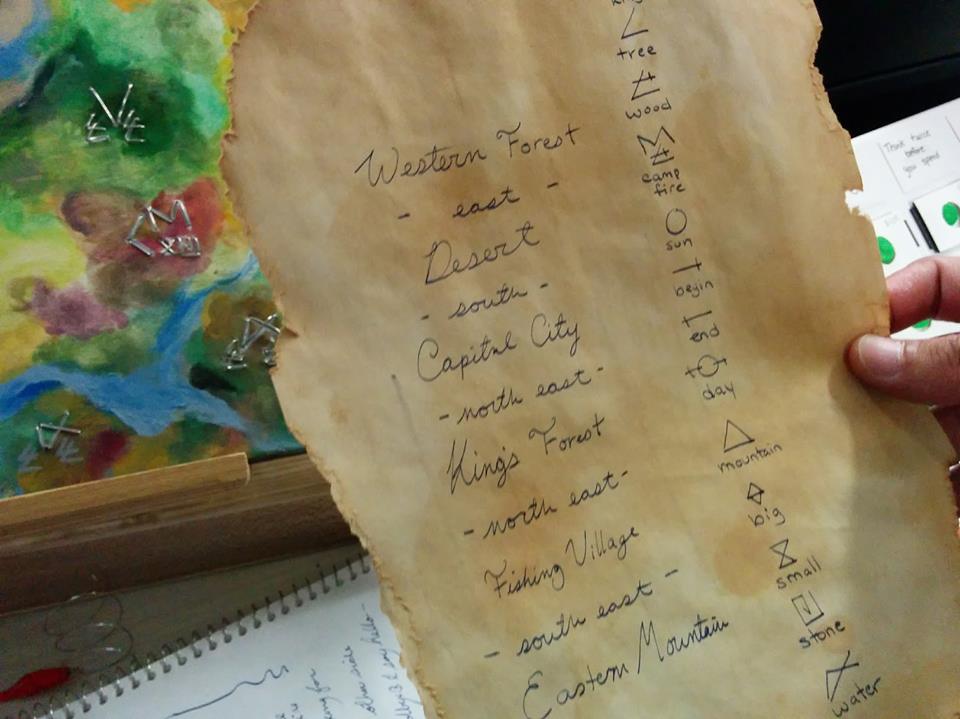 Western Forest
- east -
Desert
- south -
Capital City
- north east -
King's Forest
- north east -
Fishing Village
- south east -
Eastern Mountain
tree
wood
camp
fire
sun
begin
end
day
mountain
big
small
stone
water
Think twice
before
you spend
XIII
other side